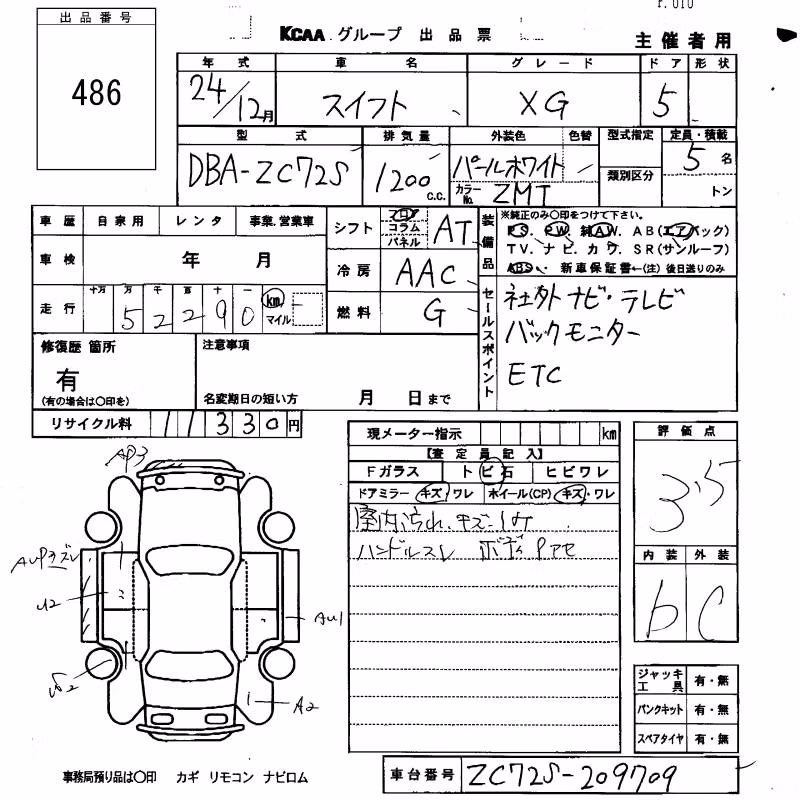 r.010
出品番号
486
KCAA グループ 出品票
主催者用
年式 車名 グレード ドア 形状
24/12月 スイフト XG 5
型式 排気量 外装色 色替 型式指定 定員・積載
DBA-ZC72S 1200 c.c. パールホワイト 類別区分 5名
カラーNo. ZMT トン
車歴 自家用 レンタ 事業・営業車
シフト フロア コラム パネル AT
装備品 ※純正のみ○印をつけて下さい。
PS. PW. 純AW. AB(エアバック)
TV. ナビ. カワ. SR(サンルーフ)
ABS. 新車保証書←(注)後日送りのみ
車検 年 月
冷房 AAC
走行 十万 万 千 百 十 一 km マイル
5 2 2 9 0
燃料 G
セールスポイント
社外ナビ・テレビ
バックモニター
ETC
修復歴 箇所
有
(有の場合は○印を)
注意事項
名変期日の短い方 月 日まで
リサイクル料 11330円
現メーター指示 km
【査定員記入】
Fガラス トビ石 ヒビワレ
ドアミラー キズ・ワレ ホイール(CP) キズ・ワレ
室内汚れ、キズ・シミ
ハンドルスレ ボディ Pアセ
評価点
3.5
内装 外装
b C
AP3
AUP3ズレ
U2
AU1
A2
ジャッキ工具 有・無
パンクキット 有・無
スペアタイヤ 有・無
事務局預り品は○印 カギ リモコン ナビロム
車台番号 ZC72S-209709